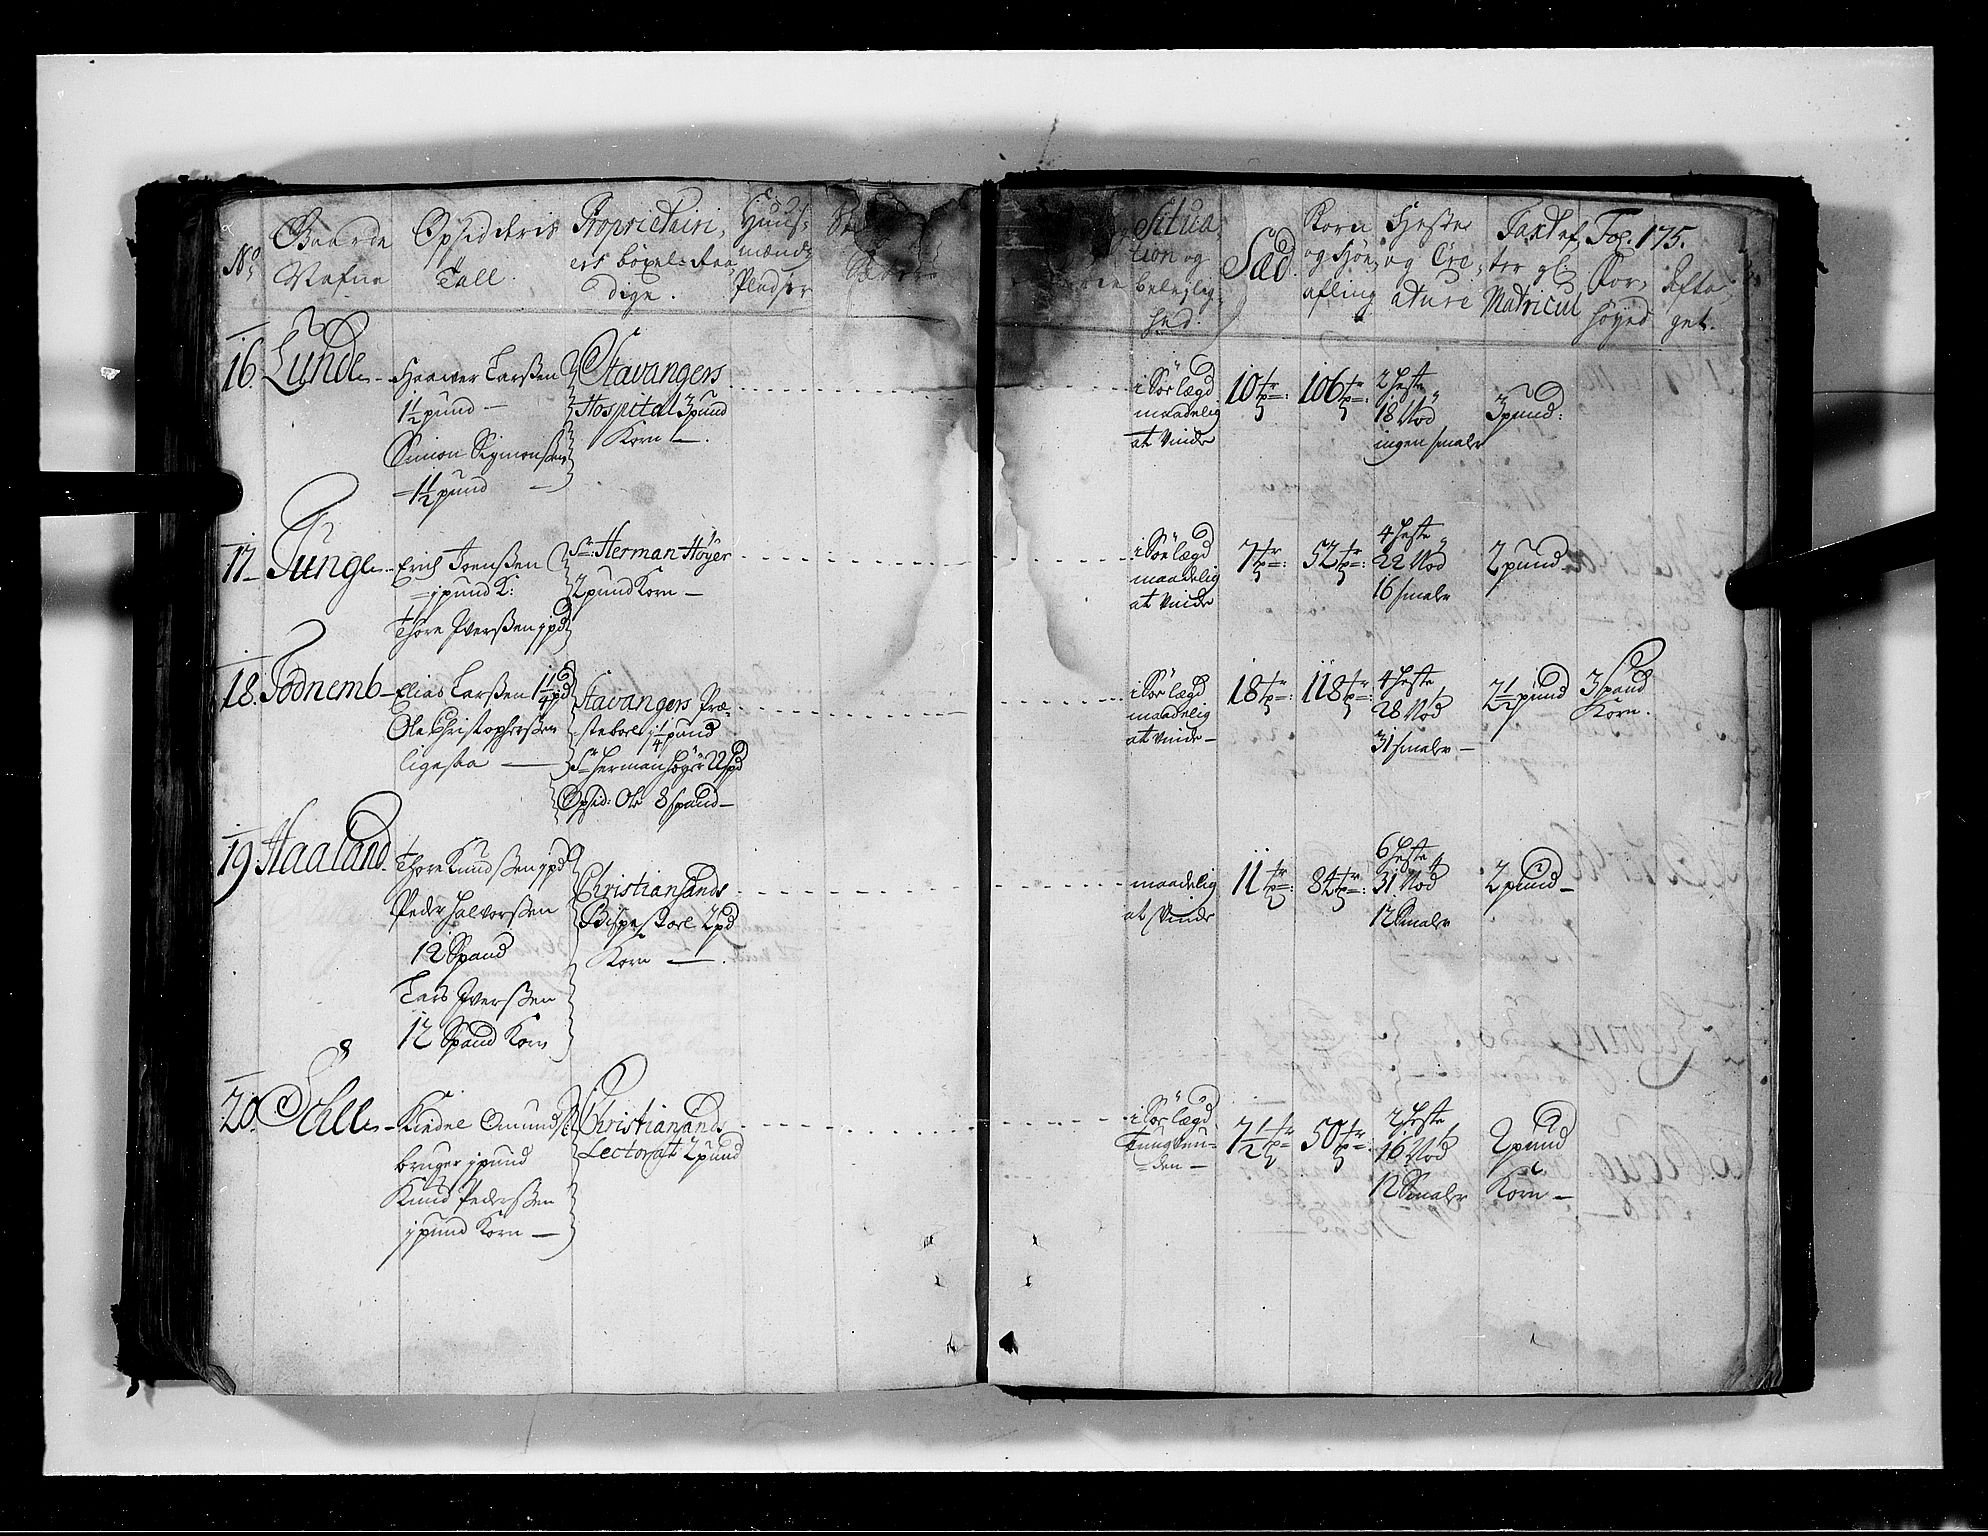 No Gaarde Nafne
Opsidderis Tall
Proprietairi, ers böxel-Raa, dige.
Huus, mænds Pladser
Situa, tion og beleylig, hed.
Sæd.
Korn og Höe, afling
Hester og Cre, ature
Taxt ef, ter gl: Matricul
Fol. 175.
For, höyed
Afta, get.
16. Lunde
Haaver Larßen
1½ pund —
Simon Sigmonßen
— 1½ pund —
Stavangers
Hospital 3 pund
Korn —.
i Soelægd
maadelig
at Vinde
10 tr
106 tr
2 Heste
18 Nod
ingen smaler
3 pund:
17 Tunge
Erich Joenßen
= j pund K:
Thore Iverßen j pd
Sr: Herman Höyer
2 pund Korn —
i Soelægd
maadelig
at Vinde
7 tr
52 tr
4 Heste
22 Nod
16 smaler
2 pund
18. Todnemb
Elias Larßen 1¼ pd
Ole Christopherßen
ligesaa —
Stavangers Præ,
steboel j¼ pund
Sr Herman Höyer
Opsid: Ole 8 spand —
i Soelægd
maadelig
at Vinde —
18 tr
118 tr
4 Heste
28 Nod
31 smaler —
2½ pund
3 Spand
Korn.
19. Haaland
Thore Knudßen j pd
Peder Halvorßen
12 Spand
Lars Iverßen
12 Spand Korn
Christiansands
Bispestoel 2 pd
Korn —
maadelig
at Vinde
11 tr
84 tr
6 Heste
31 Nod
12 Smaler
2 pund —
20. Sölle
Kindel Omunds:
bruger j pund
Knud Pederßen
j pund Korn —
Christiansands
Lectorat 2 pund
i Soelægd
Tungvun,
den —
7½ tr
50 tr
2 Heste
16 Nod
12 Smaler
2 pund
Korn —